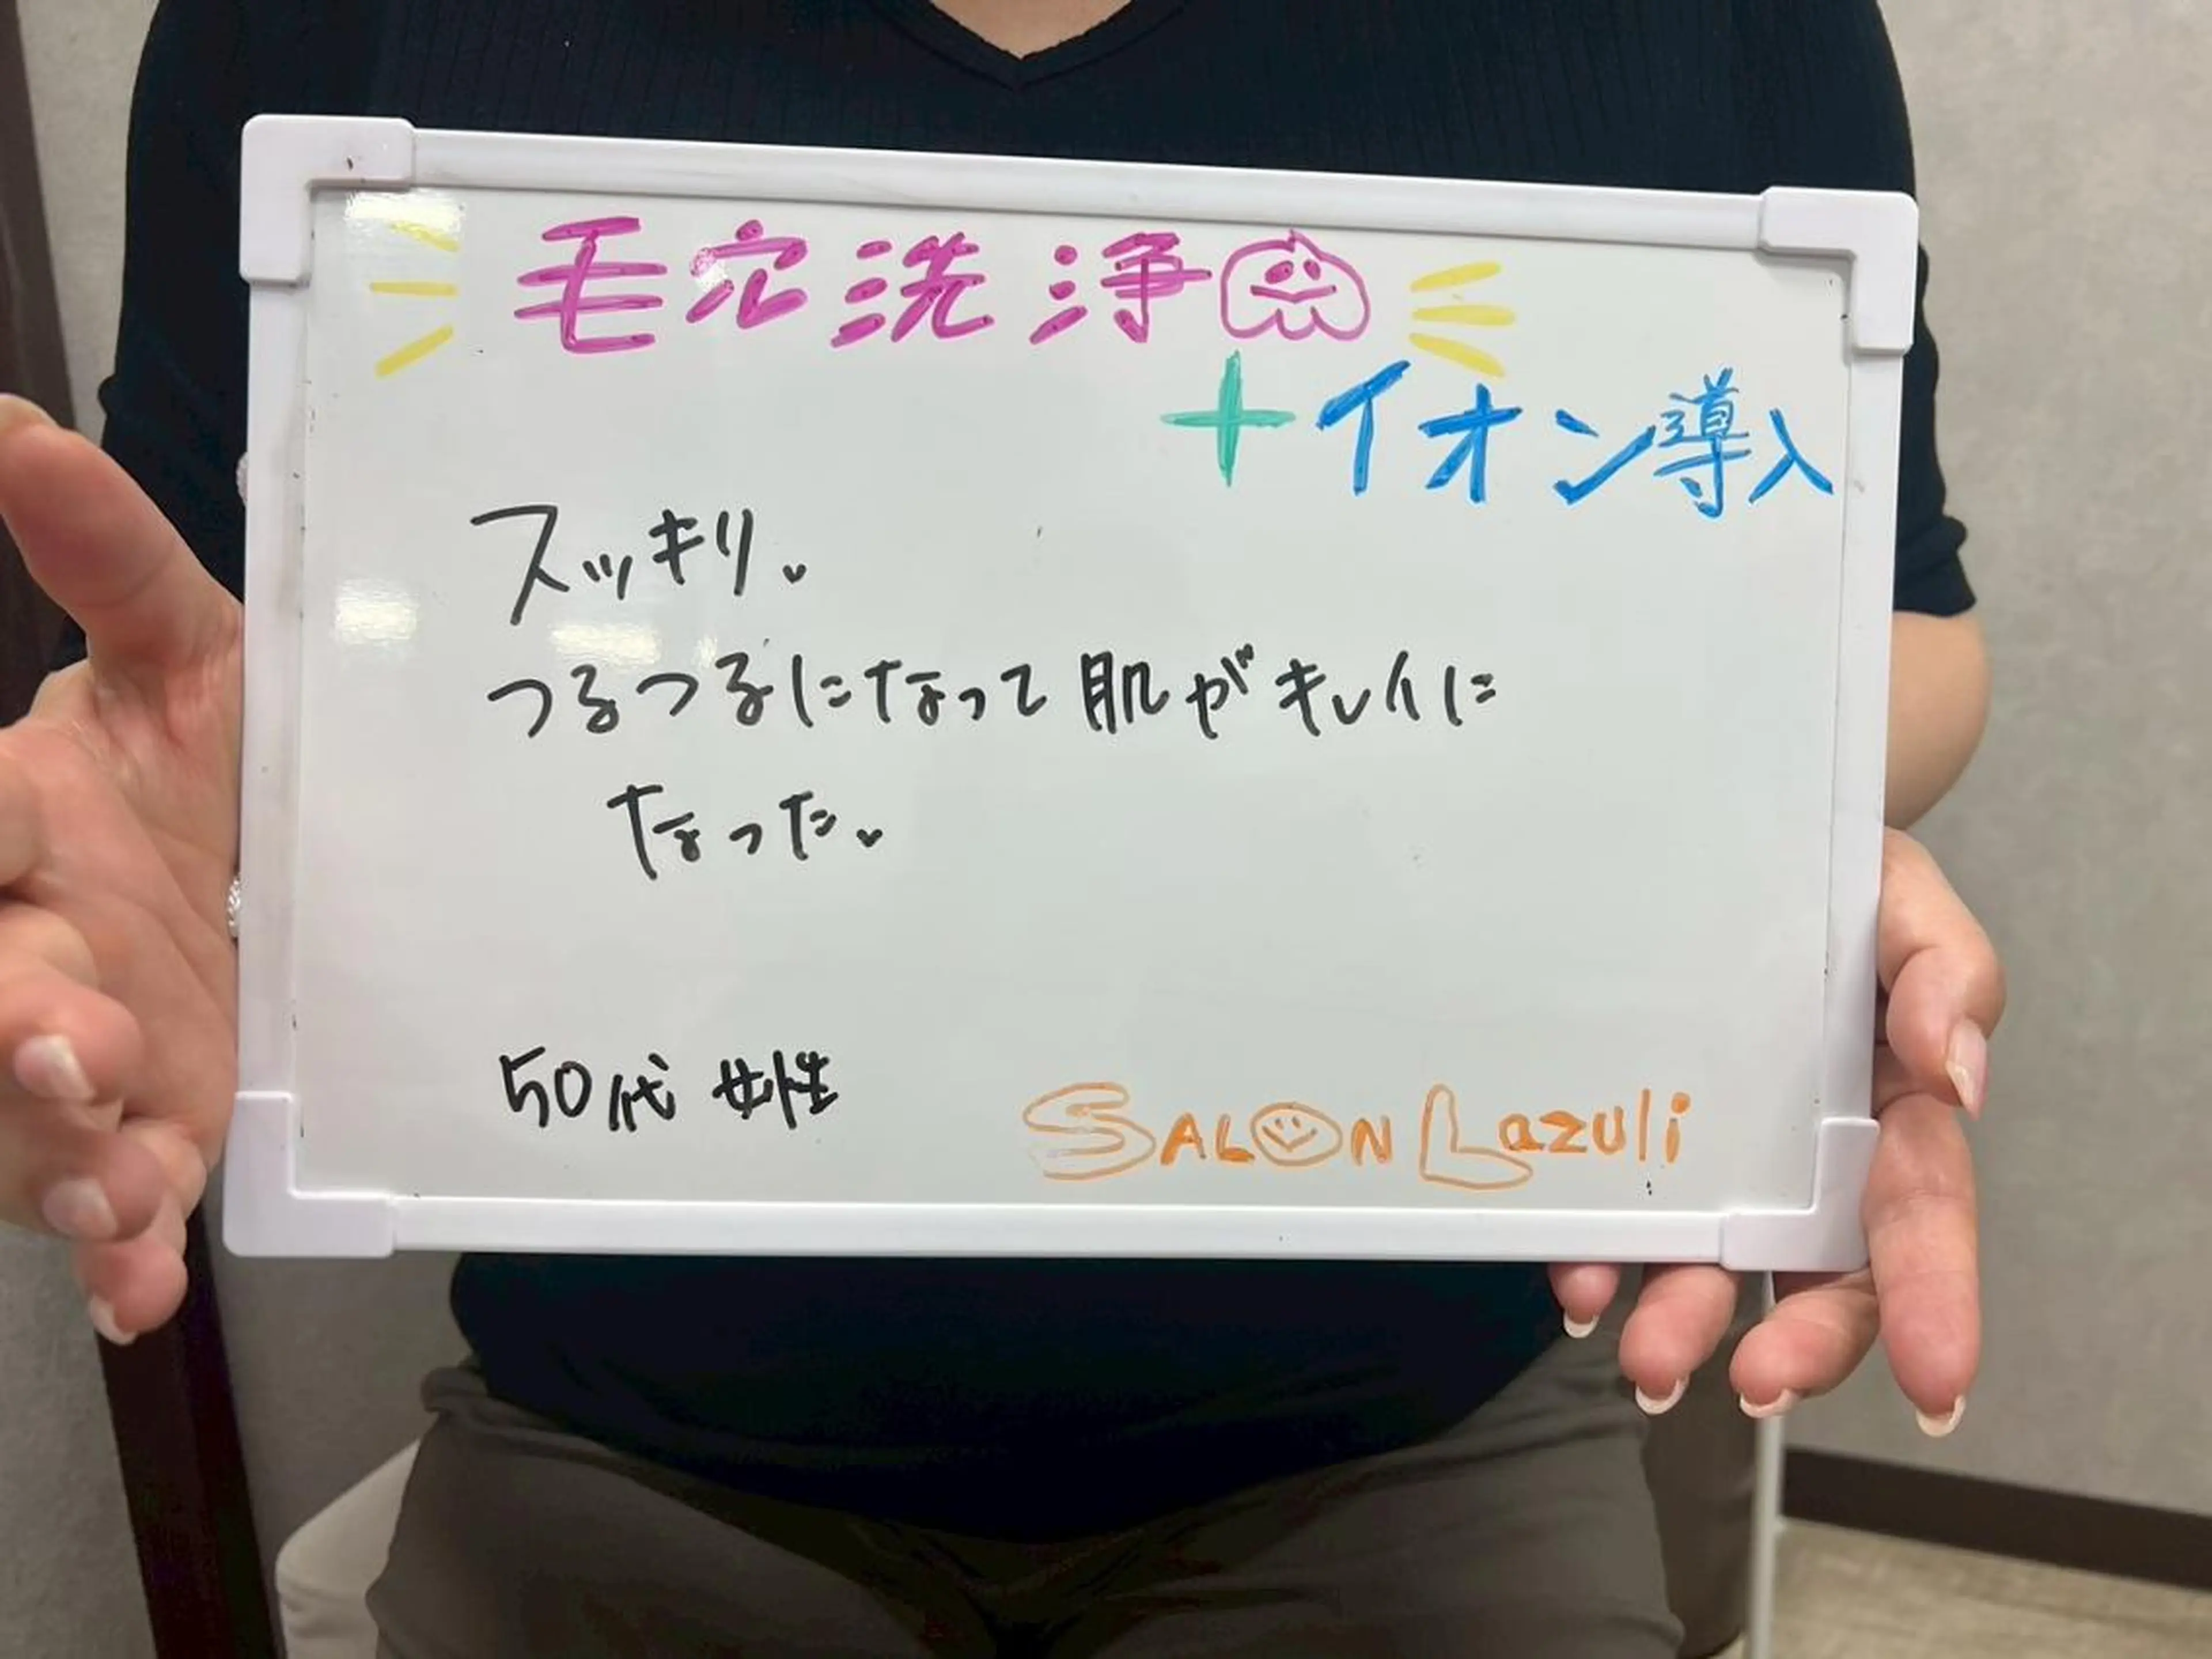 毛穴洗浄
+イオン導入
スッキリ。
つるつるになって肌がキレイに
なった。
50代 女性
SALON Lazuli